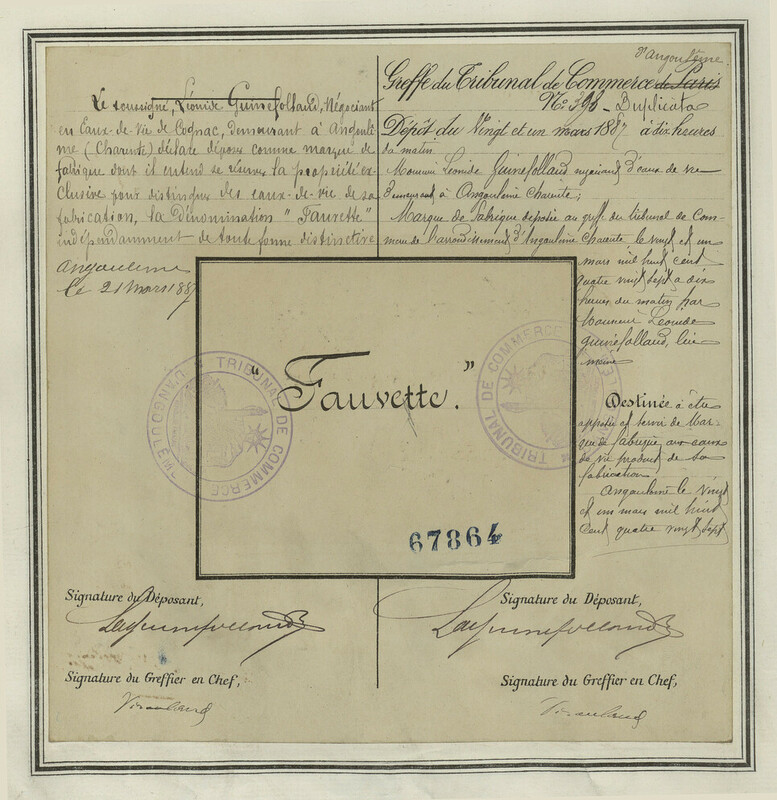 Le soussigné, Léonide Guinefolleaud, Négociant
en Eaux-de-vie de Cognac, demeurant à Angoulê
me (Charente) déclare déposer comme marque de
fabrique dont il entend se réserver la propriété ex-
clusive pour distinguer des eaux-de-vie de sa
fabrication, la Dénomination "Fauvette"
indépendamment de toute forme distinctive
Angoulême
le 21 Mars 1887
d'Angoulême
Greffe du Tribunal de Commerce de Paris
No 393 - Duplicata
Dépôt du Vingt et un mars 1887 à dix heures
du matin
Monsieur Leonide Guinefollaud négociant d'eaux de vie
demeurant à Angoulême Charente;
Marque de fabrique déposée au greffe du tribunal de Com-
merce de l'arrondissement d'Angoulême Charente, le vingt et un
mars mil huit cent
quatre vingt sept à dix
heures du matin par
Monsieur Leonide
Guinefollaud, lui
même
Destinée à être
apposée et servir de Mar-
que de fabrique aux eaux
de vie produits de sa
fabrication
Angoulême le vingt
et un mars mil huit
cent quatre vingt sept
"Fauvette."
TRIBUNAL DE COMMERCE D'ANGOULEME
TRIBUNAL DE COMMERCE
67864
Signature du Déposant,
Signature du Déposant,
Signature du Greffier en Chef,
Signature du Greffier en Chef,